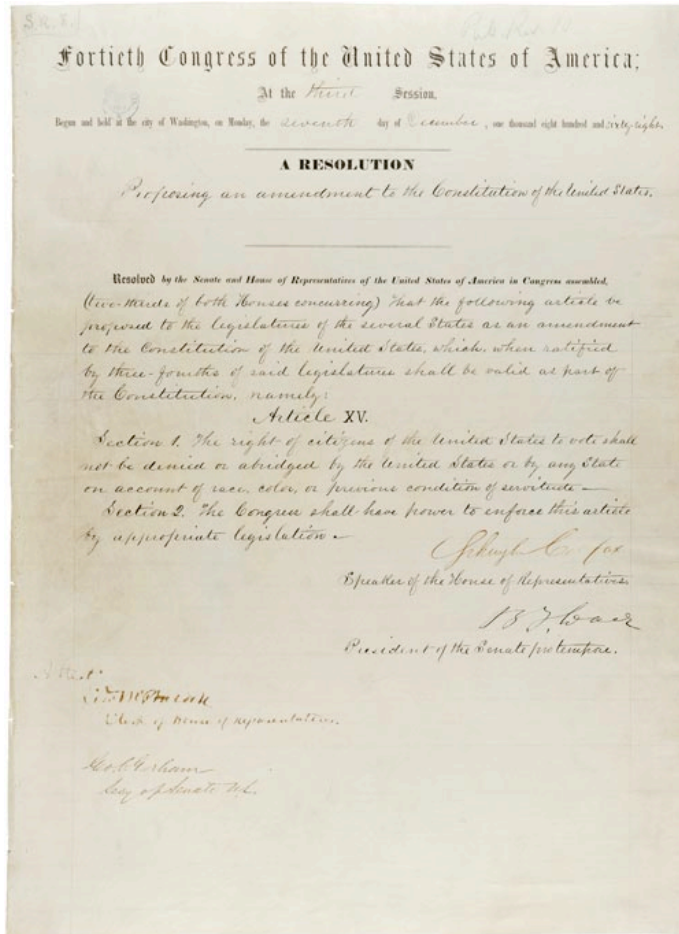 S.R. 8.
Fortieth Congress of the United States of America;
At the third Session,
Begun and held at the city of Washington, on Monday, the seventh day of December, one thousand eight hundred and sixty-eight.
A RESOLUTION
Proposing an amendment to the Constitution of the United States.
Resolved by the Senate and House of Representatives of the United States of America in Congress assembled,
(two-thirds of both Houses concurring) That the following article be
proposed to the legislatures of the several States as an amendment
to the Constitution of the United States, which, when ratified
by three-fourths of said legislatures shall be valid as part of
the Constitution, namely:
Article XV.
Section 1. The right of citizens of the United States to vote shall
not be denied or abridged by the United States or by any State
on account of race, color, or previous condition of servitude —
Section 2. The Congress shall have power to enforce this article
by appropriate legislation —
Schuyler Colfax
Speaker of the House of Representatives.
B F Wade
President of the Senate pro tempore.
Attest
Clerk of House of Representatives.
Geo. C. Gorham
Secy of Senate U.S.